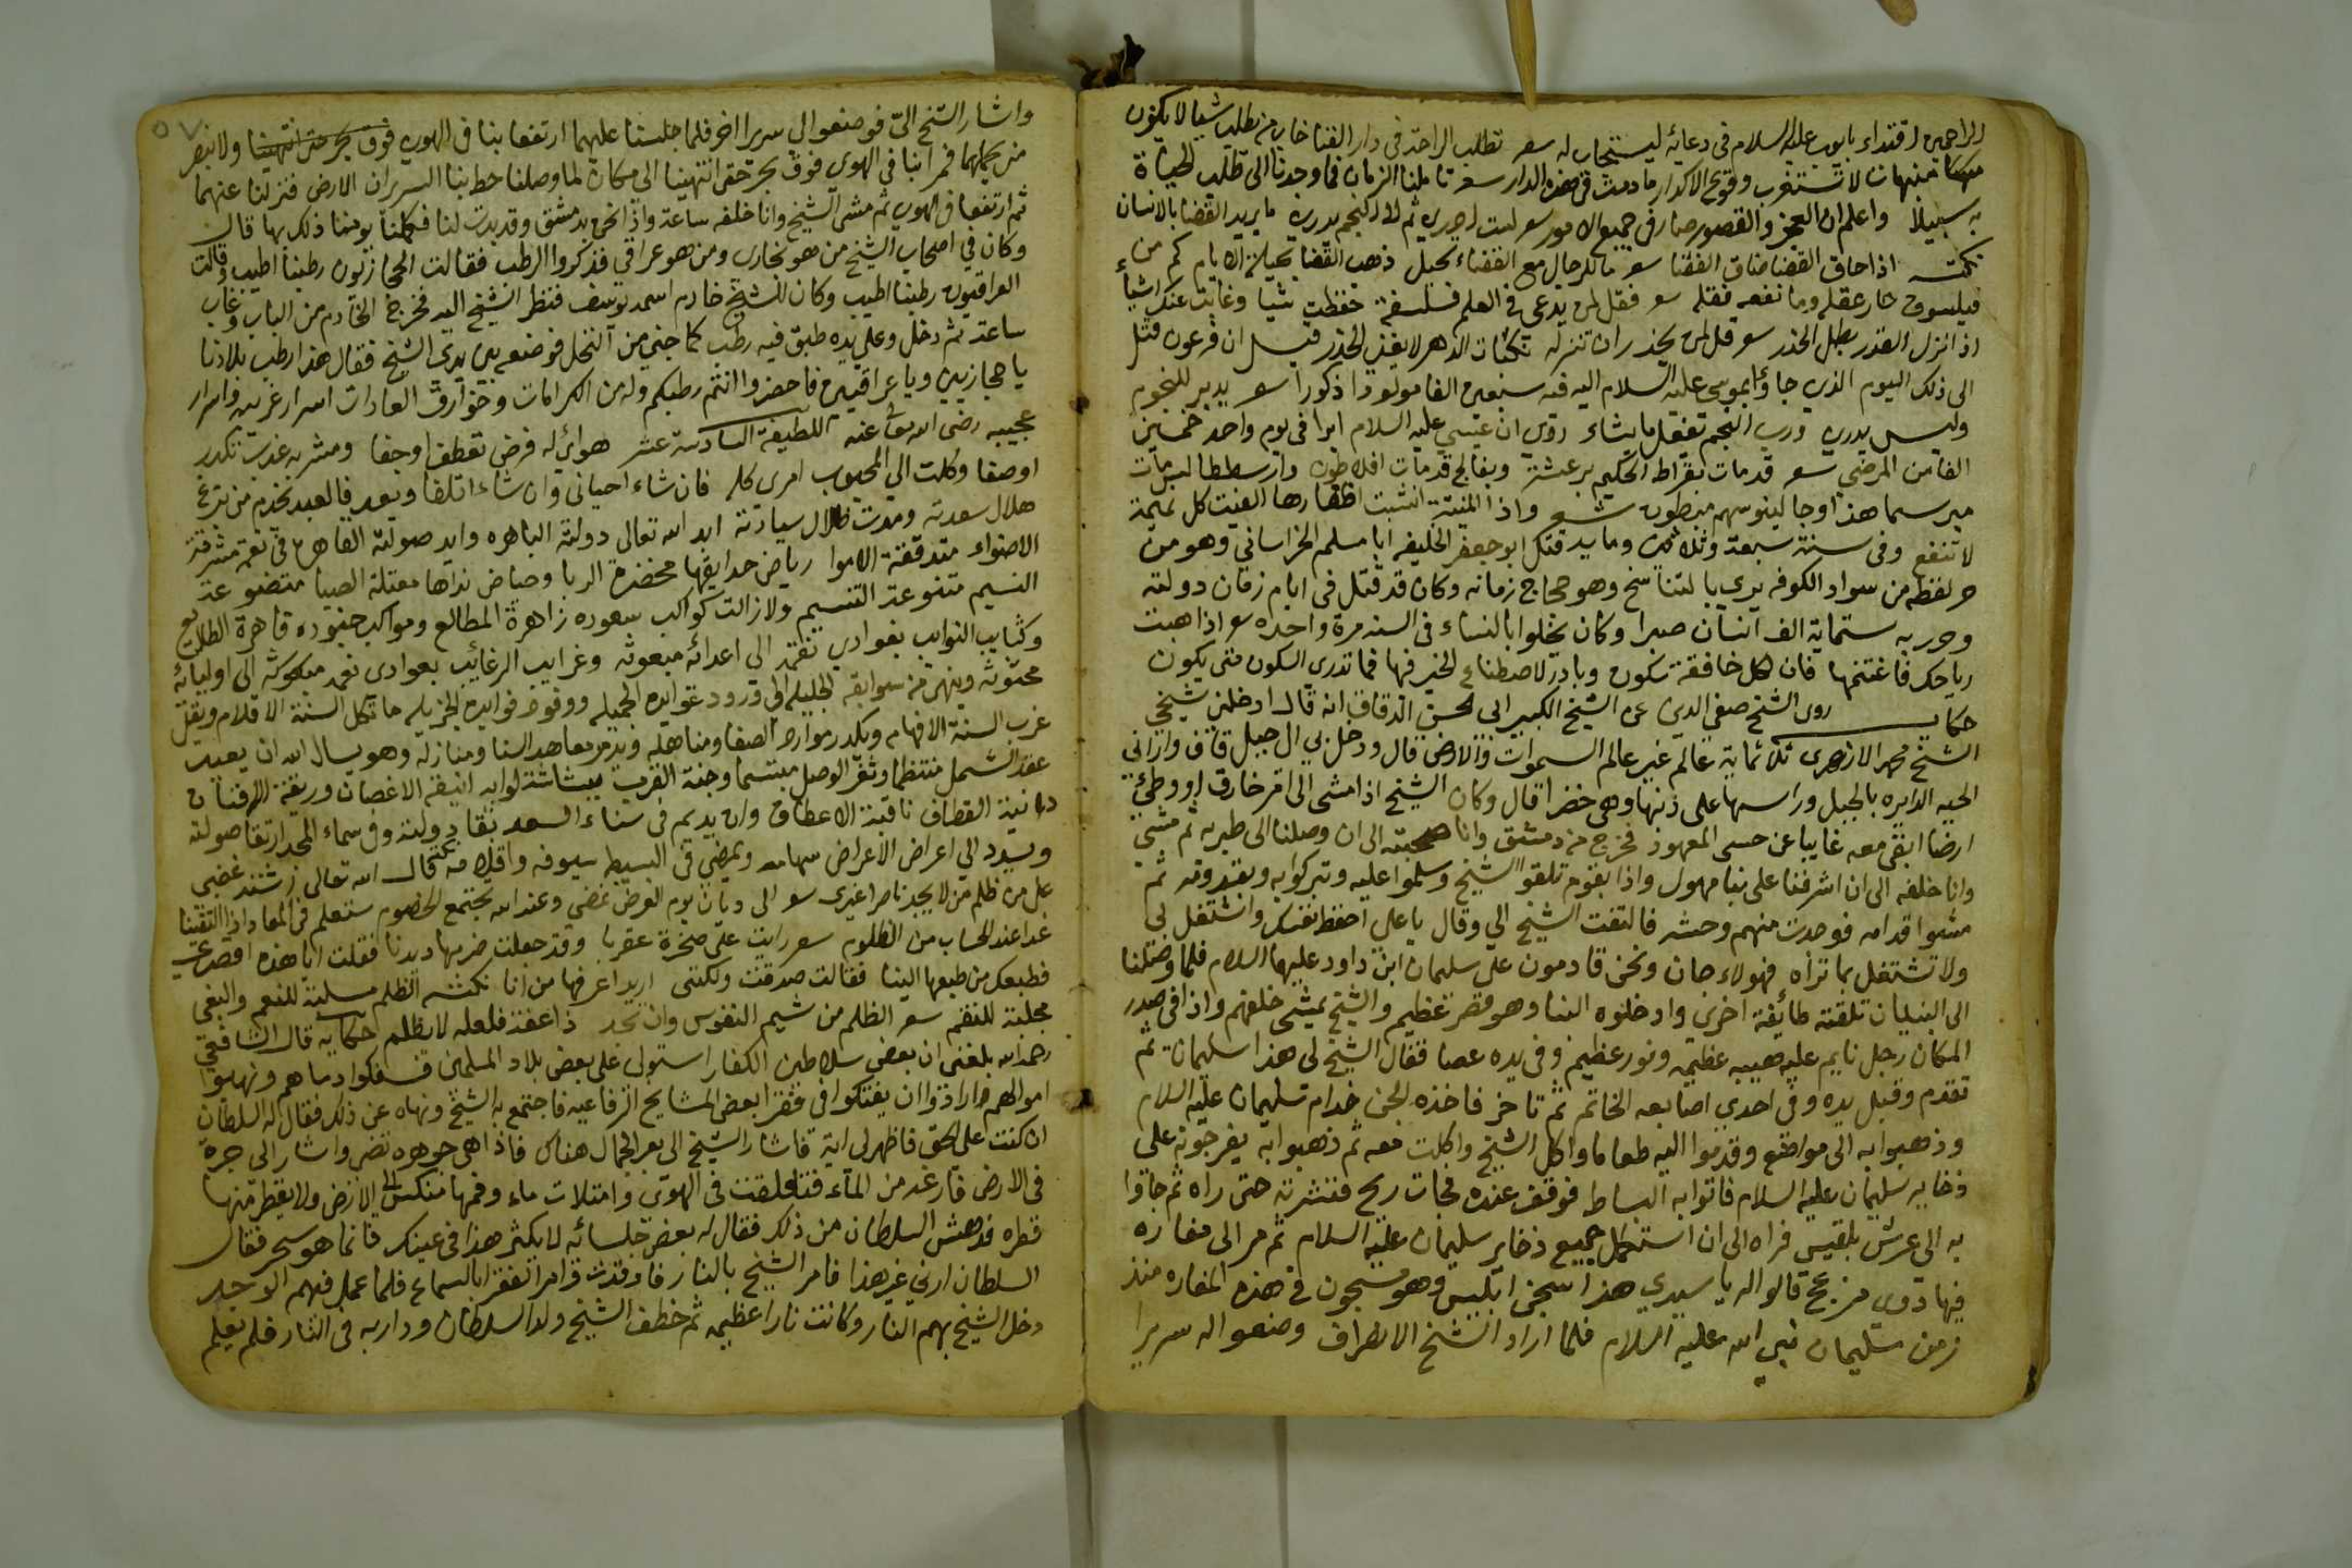 الراحمين اقتداء بايوب عليه السلام في دعائه ليستجاب له سعر تطلب الراحة في دار الفنا خاب من يطلب شيا لا يكون
لا تستغرب وقوع الاكدار ما دمت في هذه الدار سعر تاملنا الزمان فما وجدنا الى طلب الحياة
به سبيلا واعلم ان العجز والقصور صار في جميع الامور سعر لست ادري ثم لا المنجم يدري ما يريد القضا بالانسان
نكتة اذا حاق القضا ضاق الفضا سعر ما للرجال مع القضاء تحيل ذهب القضا بحيلة الايام كم من
فيلسوف حار عقله وما نفعه فقله سعر فقل لمن يدعي في العلم فلسفة حفظت شيا وغابت عنك اشياء
اذا نزل القدر بطل الحذر سعر قل لمن يحذر ان تنزله نكبات الدهر لا يغني الحذر قيل ان فرعون قتل
الى ذلك اليوم الذي جاء موسى عليه السلام اليه فيه سبعين الفا مولودا ذكورا سعر يدبر للنجوم
وليس يدري ورب النجم تفعل ما يشاء روي ان عيسى عليه السلام ابرا في يوم واحد خمسين
الفا من المرضى سعر قد مات بقراط الحكيم برعشة وبفالج قد مات افلاطون وارسططاليس مات
مبرسما هذا وجالينوسهم مبطون شعر واذا المنية انشبت اظفارها الفيت كل تميمة
لا تنفع وفي سنة سبعة وثلاثين وماية قتل ابو جعفر الخليفه ابا مسلم الخراساني وهو من
من سواد الكوفه يرى بالتناسخ وهو حجاج زمانه وكان قد قتل في ايام زمان دولته
وحربه ستماية الف انسان صبرا وكان يخلوا بالنساء في السنه مرة واحده سعر اذا هبت
رياحك فاغتنمها فان لكل خافقة سكون وبادر لاصطناع الخير فيها فما تدري السكون متى يكون
حكاية روى الشيخ صفي الدين عن الشيخ الكبير ابي الحسن الدقاق انه قال ادخلني شيخي
الشيخ محمد الازهري ثلاثماية عالم غير عالم السموات والارض قال ودخل بي الى جبل قاف واراني
الحيه الدايره بالجبل وراسها على ذنبها وهي خضرا قال وكان الشيخ اذا مشى الى امر خارق او وطئ
ارضا ابقى معه غايبا عن حسي المعهود فخرج من دمشق وانا صحبته الى ان وصلنا الى طبريه ثم مشى
وانا خلفه الى ان اشرفنا على بنا مهول واذا بقوم تلقوا الشيخ وسلموا عليه وتبركوا به ثم
مشوا قدامه فوجدت منهم وحشه فالتفت الشيخ الي وقال يا علي احفظ نفسك واشتغل بي
ولا تشتغل بما تراه فهولاء جان ونحن قادمون على سليمان ابن داود عليهما السلام فلما وصلنا
الى البنيان تلقته طائفة اخرى وادخلوه البنا وهو قصر عظيم والشيخ يمشي خلفهم واذا في صدر
المكان رجل نايم عليه هيبه عظيمه ونور عظيم وفي يده عصا فقال الشيخ لي هذا سليمان ثم
تقدم وقبل يده وفي احدى اصابعه الخاتم ثم تاخر فاخذه الجن خدام سليمان عليه السلام
وذهبوا به الى مواضع وقدموا اليه طعاما واكل الشيخ واكلت معه ثم ذهبوا به يفرجونه على
ذخاير سليمان عليه السلام فاتوا به البساط فوقف عنده فجات ريح فنشرته حتى راه ثم جاؤا
به الى عرش بلقيس فراه الى ان استكمل جميع ذخاير سليمان عليه السلام ثم مر الى مغاره
فيها دوي مزعج قالوا له يا سيدي هذا سجن ابليس وهو مسجون في هذه المغاره منذ
زمن سليمان نبي الله عليه السلام فلما اراد الشيخ الانصراف وضعوا له سريرا
واشار الشيخ الي فوضعوا لي سريرا اخر فلما جلسنا عليهما ارتفعا بنا في الهوى فوق بحر حتى انتهينا ولا نبصر
من يحملهما فمرا بنا في الهوى فوق بحر حتى انتهينا الى مكان لما وصلنا حط بنا السريران الارض فنزلنا عنهما
ثم ارتفعا في الهوى ثم مشى الشيخ وانا خلفه ساعة واذا نحن بدمشق وقد بدت لنا يومنا ذلك بها قال
وكان في اصحاب الشيخ من هو بخاري ومن هو عراقي فذكروا الرطب فقالت الحجازيون رطبنا اطيب وقالت
العراقيون رطبنا اطيب وكان للشيخ خادم اسمه يوسف فنظر الشيخ اليه فخرج الخادم من الباب وغاب
ساعة ثم دخل وعلى يده طبق فيه رطب كما جني من النخل فوضعه بين يدي الشيخ فقال هذا رطب بلادنا
يا حجازيين ويا عراقيين فاحضروا انتم رطبكم وله من الكرامات وخوارق العادات اسرار غريبه واسرار
عجيبه رضي الله تعالى عنه اللطيفة السادسة عشر هوائ له فرض تعطف او جفا ومشربه عذب تكدر
او صفا وكلت الى المحبوب امري كله فان شاء احياني وان شاء اتلفا وبعد فالعبد يخدم من بزغ
هلال سعدته ومدت ظلال سيادته ايد الله تعالى دولته الباهره وايد صولته القاهره في نعم مشرقة
الاضواء متدفقة الاموا رياض حدايقها مخضرة الربا وحياض نداها معتلة الصبا متضوعة
النسيم متنوعة التنسيم ولا زالت كواكب سعوده زاهرة المطالع ومواكب جنوده قاهرة الطلايع
وكتايب النوايب بغوادي نقمته الى اعدائه مبعوثه وغرايب الرغائب بعوادي نعمه الى اوليائه
محثوثه وينهي من سوابقه الجليله الى ورود عوايده الجميله ووفور فوايده الجزيله ما تكل السنة الاقلام ويفل
غرب السنة الافهام وتكدر موارد الصفا ومناهله ويدمر معاهد السنا ومنازله وهو يسال الله ان يعيد
عقد الشمل منتظما وثغر الوصل مبتسما وجنة القرب انيقة الاغصان وريقة الافنان
دانية القطاف الاعطاف وان يديم في سناء السعد بقا دولته وفي سماء المجد ارتقا صولته
ويسدد الى اعراض الاعراض سهامه ويمضي في البسيط سيوفه واقلامه نكتة قال الله تعالى اشتد غضبي
على من ظلم من لا يجد ناصرا غيري سعر الى ديان يوم العرض نمضي وعند الله يجتمع الخصوم ستعلم في المعاد اذا التقينا
غدا عند الحساب من الظلوم سعر رايت على صخرة عقربا وقد جعلت ضربها ديدنا فقلت ايا هذه اقصدي
فطبعك من طبعها الينا فقالت صدقت ولكنني اريد اعرفها من انا نكتة الظلم مسلبة للنعم والبغي
مجلبة للنقم سعر الظلم من شيم النفوس وان تجد ذا عفة فلعله لا يظلم حكاية قال الشافعي
رحمه الله بلغني ان بعض سلاطين الكفار استولى على بعض بلاد المسلمين فسفكوا دماهم ونهبوا
اموالهم وارادوا ان يفتكوا في فقرا بعض المشايخ الرفاعيه فاجتمع به الشيخ ونهاه عن ذلك فقال له السلطان
ان كنت على الحق فاظهر لي اية فاشار الشيخ الى بعر الجمال هناك فاذا هي جوهره تضي واشار الى جرة
في الارض فارغه من الماء فتعلقت في الهوى وامتلات ماء وفمها منكس الى الارض ولا يقطر منها
قطره فدهش السلطان من ذلك فقال له بعض جلسائه لا يكثر هذا في عينك فانما هو سحر فقال
السلطان ارني غير هذا فامر الشيخ بالنار فاوقدت وامر الفقرا بالسماع فلما عمل فيهم الوجد
دخل الشيخ بهم النار وكانت نارا عظيمه ثم خطف الشيخ ولد السلطان ودار به في النار فلم يعلم